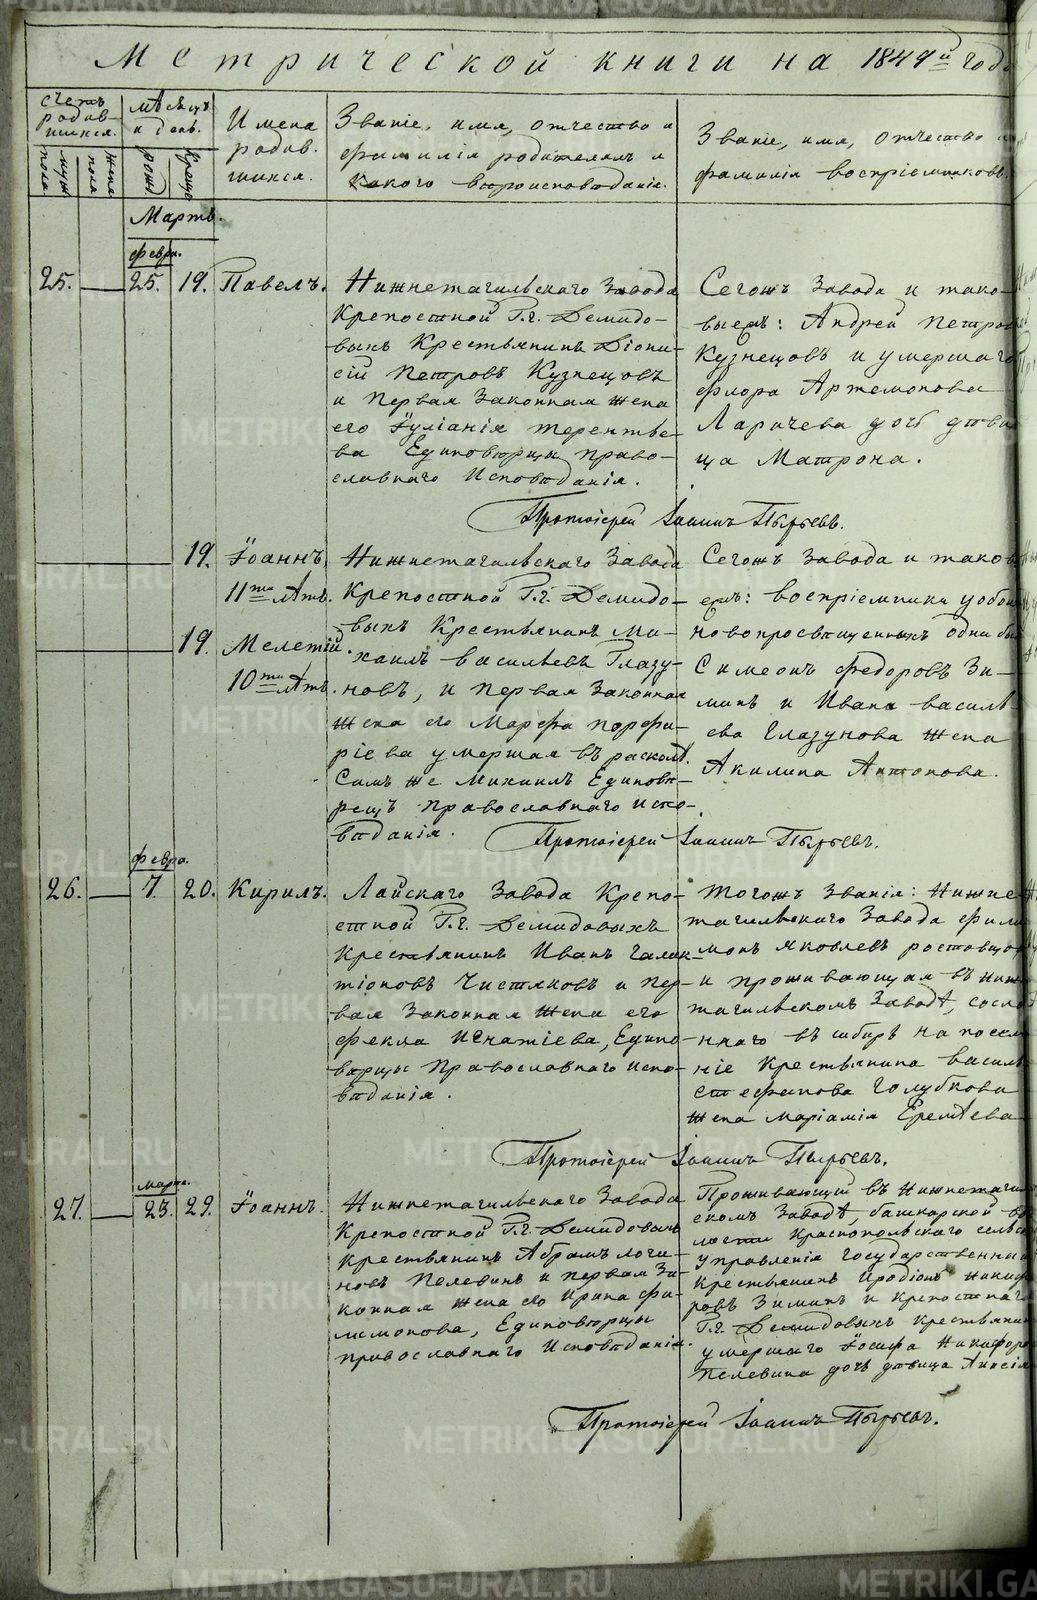 Метрической книги на 1849й годъ
Счетъ родив-шихся.
муж. пола
жен. пола
мѢсяцъ и день.
рожд.
крещ.
Имена родив-шихся.
Званіе, имя, отчество и фамилія родителей и какого вѢроисповѢданія.
Званіе, имя, отчество и фамилія воспріемниковъ.
Мартъ.
февра.
25. 25. 19. Павелъ.
Нижнетагильскаго Завода
Крепостной Г.г. Демидо-
выхъ Крестьянинъ Діони-
сій Петровъ Кузнецовъ
и Первая Законная жена
его Іуліанія Теренть-
ева ЕдиновѢрцы Право-
славнаго ИсповѢданія.
Сегожъ Завода и тако-
выежъ: Андрей Петров
Кузнецовъ и умершаго
Флора Артемонова
Ларичева дочь дѢви-
ца Матрона.
Протоіерей Іоаннъ Пырьевъ.
19. Іоаннъ.
11ти лѢтъ.
19. Мелетій.
10ти лѢтъ.
Нижнетагильскаго Завода
Крепостной Г.г. Демидо-
выхъ Крестьянинъ Ми-
хаилъ Васильевъ Глазу-
новъ, и Первая Законная
жена его Марфа Порфи-
ріева умершая въ расколѢ.
Самъ же Михаилъ ЕдиновѢ-
рецъ Православнаго Испо-
вѢданія.
Сегожъ Завода и таков
ежъ: воспріемники у обоих
новопросвѢщенныхъ одни был
Симеонъ Федоровъ Зи-
минъ и Ивана Василь-
ева Глазунова жена
Акилина Антонова.
Протоіерей Іоаннъ Пырьевъ.
февра.
26. 7. 20. Кирилъ.
Лайскаго Завода Крепо-
стной Г.г. Демидовыхъ
Крестьянинъ Иванъ Галак-
тіоновъ Чистяковъ и Пер-
вая Законная жена его
Фекла Игнатіева, Едино-
вѢрцы Православнаго Испо-
вѢданія.
Тогожъ Званія: Нижне-
тагильскаго Завода Фили
монъ Яковлевъ Ростовщи
и проживающая въ Ниж
тагильскомъ ЗаводѢ, сосла
ннаго въ сибирь на посел
ніе Крестьянина Василь
Стефанова Голубкова
жена Маріамія ЕремѢева
Протоіерей Іоаннъ Пырьевъ.
марта.
27. 23. 29. Іоаннъ.
Нижнетагильскаго Завода
Крепостной Г.г. Демидовыхъ
Крестьянинъ Абрамъ Логи-
новъ Пелевинъ и Первая За-
конная жена его Ирина Фи-
лимонова, ЕдиновѢрцы
Православнаго ИсповѢданія.
Проживающій въ Нижнетаги
скомъ ЗаводѢ, башкарской во
лости Краснопольскаго сельс
управленія Государственный
Крестьянинъ Иродіонъ Никиф
ровъ Зиминъ и Крепостнаго
Г.г. Демидовыхъ Крестьянин
умершаго Іосифа Никифоро
Пелевина дочь дѢвица Анисія
Протоіерей Іоаннъ Пырьевъ.
METRIKI.GASO-URAL.RU